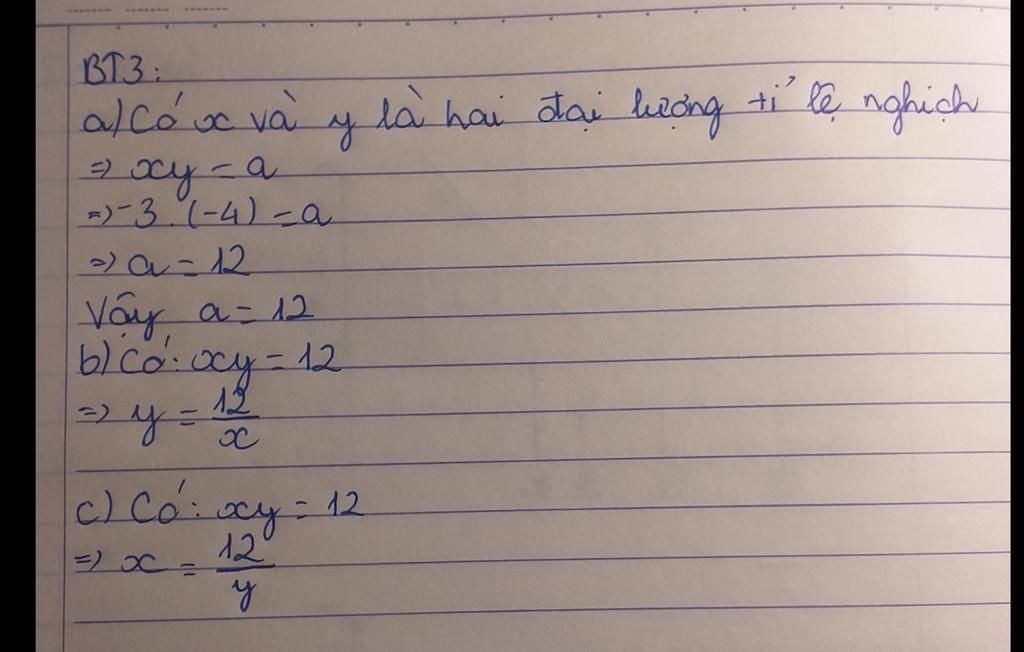 BT3:
a) Có x và y là hai đại lượng tỉ lệ nghịch
=> xy = a
=> -3.(-4) = a
=> a = 12
Vậy a = 12
b) Có: xy = 12
=> y = 12/x
c) Có: xy = 12
=> x = 12/y